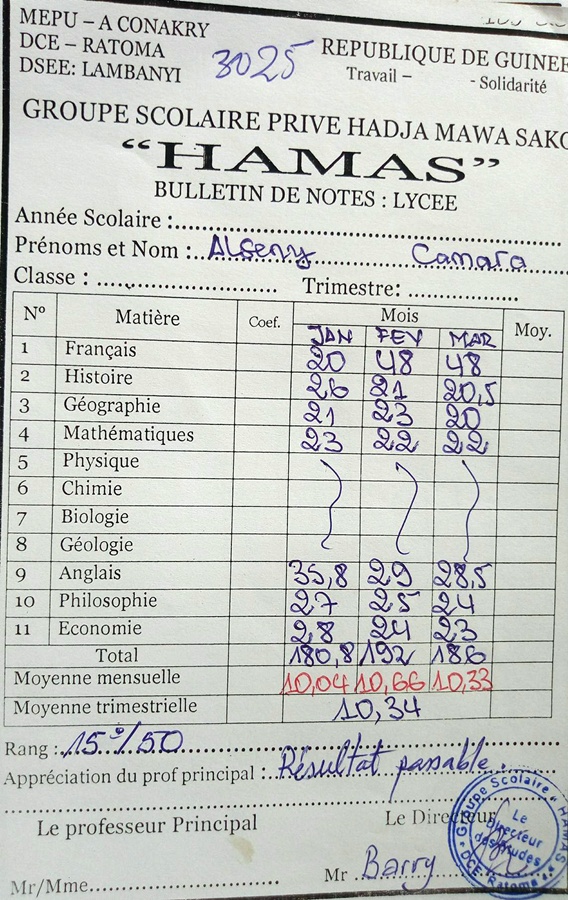 MEPU – A CONAKRY
DCE – RATOMA
DSEE: LAMBANYI
3025
REPUBLIQUE DE GUINEE
Travail – - Solidarité
GROUPE SCOLAIRE PRIVE HADJA MAWA SAKO
“HAMAS”
BULLETIN DE NOTES : LYCEE
Année Scolaire :
Prénoms et Nom : Algeny Camara
Classe : Trimestre:
N° Matière Coef. Mois Moy.
JAN FEV MAR
1 Français 20 48 48
2 Histoire 26 21 20,5
3 Géographie 21 23 20
4 Mathématiques 23 22 22
5 Physique
6 Chimie
7 Biologie
8 Géologie
9 Anglais 35,8 29 28,5
10 Philosophie 27 25 24
11 Economie 28 24 23
Total 180,8 192 186
Moyenne mensuelle 10,04 10,66 10,33
Moyenne trimestrielle 10,34
Rang : 15e/50
Appréciation du prof principal : Résultat passable.
Le professeur Principal Le Directeur
Mr/Mme Mr Barry
Groupe Scolaire " HAMAS
Le Directeur des études
DCE-Ratoma